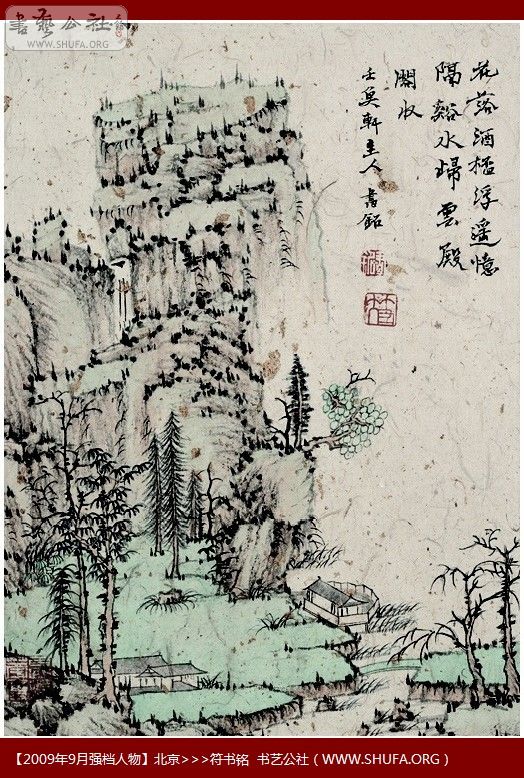 書藝公社
WWW.SHUFA.ORG
花落酒浮遥憶
隔谿水歸雲殿
閣收
軒主人 書銘
【2009年9月强档人物】北京>>>符书铭 书艺公社（WWW.SHUFA.ORG）